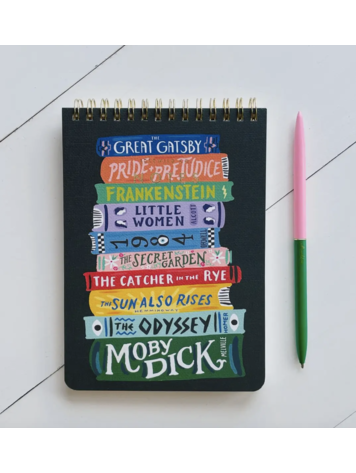 THE
GREAT GATSBY
PRIDE + PREJUDICE
FRANKENSTEIN
LITTLE
WOMEN ALCOTT
1984 ORWELL
THE SECRET
GARDEN
THE CATCHER IN THE RYE
THE SUN ALSO RISES
HEMINGWAY
THE ODYSSEY HOMER
MOBY
DICK MELVILLE